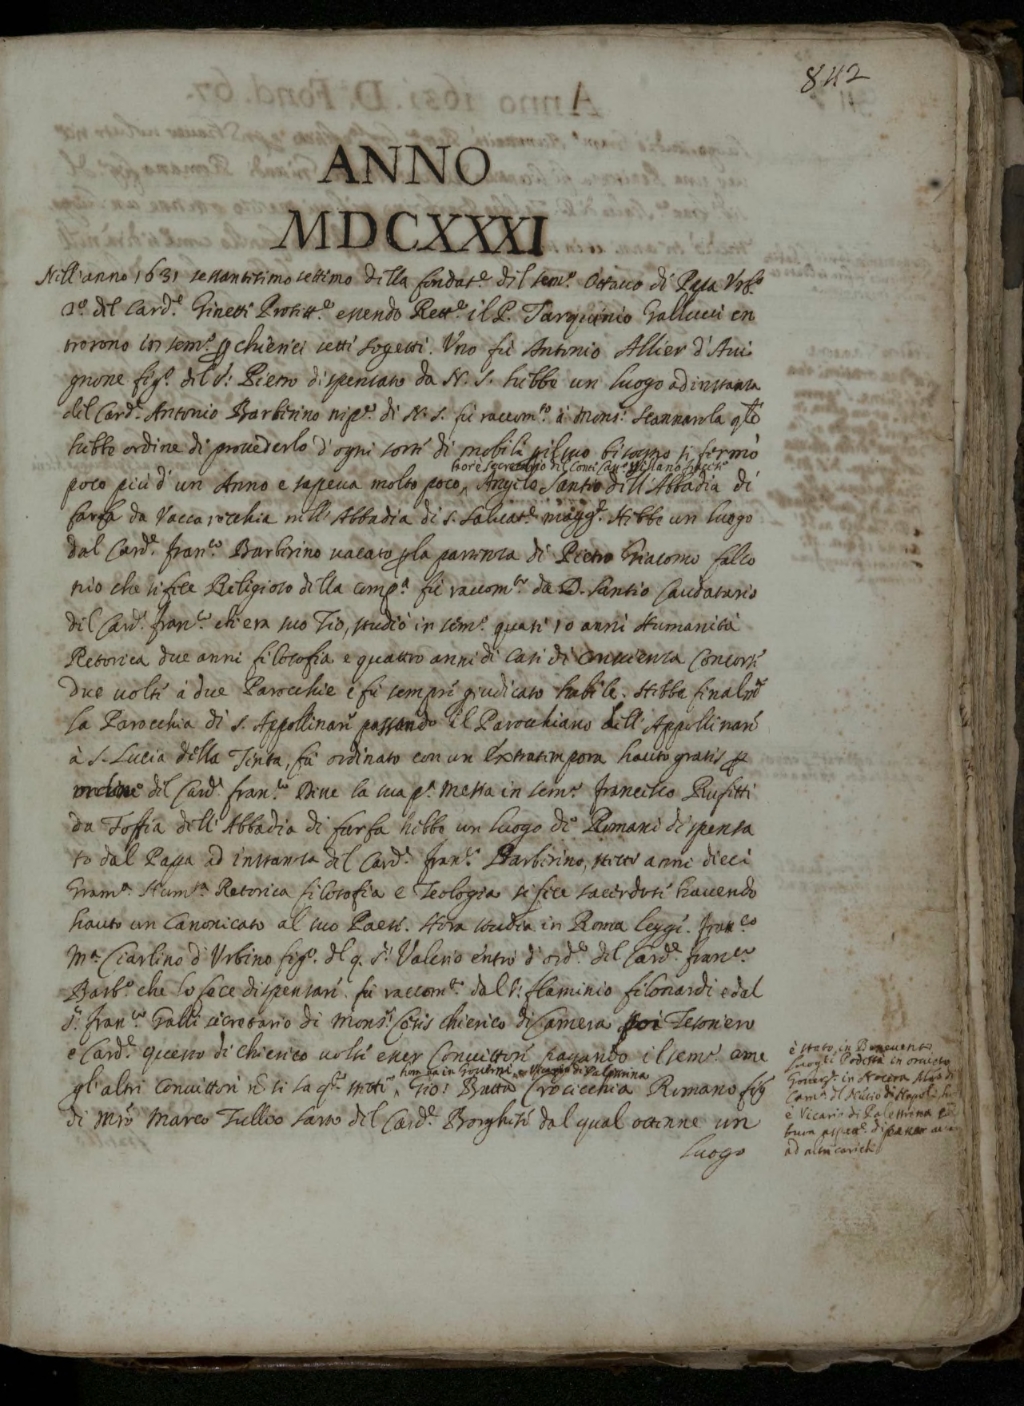 842
ANNO
MDCXXXI
Nell'anno 1631 sessantesimo settimo della fondat.e del sem.o Ottavo di Papa Urb.o
2.o del Card.e Ginetti Protett.e essendo Rett.e il P. Tarquinio Gallucci en
trorono in sem.o p chierici setti sogetti. Uno fù Antonio Allier d'Avi
gnone fig.o del S.r Pietro dispensato da N. S. hebbe un luogo ad instanza
del Card. Antonio Barberino nip.e di N. S. fù raccom.to à Mons.r Scannarola q.le
hebbe ordine di provederlo d'ogni sorte di mobili p il suo bisogno si fermò
hor è secretario del
poco più d'un Anno e sapeva molto poco, Angelo Santio dell'Abbadia di
farfa da Vacca recchia nell'Abbadia di S. Salvat.e magg.e Hebbe un luogo
dal Card.e fran.co Barberino vacato p la partenza di Pietro Giacomo falco
nio che si fece Religioso della comp.a fù raccom.to da D. Santio Caudatario
del Card.e fran.co ch'era suo Tio, studiò in sem.o quasi 10 anni Humanità
Retorica due anni filosofia e quattro anni di Casi di conscienza Concorse
due volte à due Parocchie e fù sempre giudicato habile. Hebbe finalm.te
la Parocchia di S. Appollinare passando il Parochiano dell'Appollinare
à S. Lucia della Tinta, fù ordinato con un Extratempora havuto gratis p
ordine del Card. fran.co Disse la sua p.a Messa in sem.o francesco Rufetti
da Toffia dell'Abbadia di farfa hebbe un luogo de Romani dispensa
to dal Papa ad instanza del Card.e fran.co Barberino, stette anni dieci
Gram.a Hum.tà Retorica filosofia e Teologia si fece sacerdote havendo
hauto un Canonicato al suo Paese. Hora studia in Roma leggi. fran.co
M.a Ciarlino d'Urbino fig.o del q. S.r Valerio entrò d'ord.e del Card.e fran.co
Barb.o che lo fece dispensare fù raccom.to dal S.r flaminio filonardi e dal
S.r fran.co Galli secretario di Mons.r Cesis chierico di Camera poi Tesoriero
e Card.e questo di chierico volse esser Convittore pagando il sem.o come
hor và in governi, e Vicario di Palestrina
gl'altri Convittori Gio: Batta Crocicchia Romano fig.o
di M.ro Marco Tullio sarto del Card.e Borghese dal qual ottenne un
luogo
è stato in Benevento
luog.te Podestà in
Govern.e in Nocera
Cam.a del Nuntio di Napoli
è Vicario di Palestrina
ad altri carichi